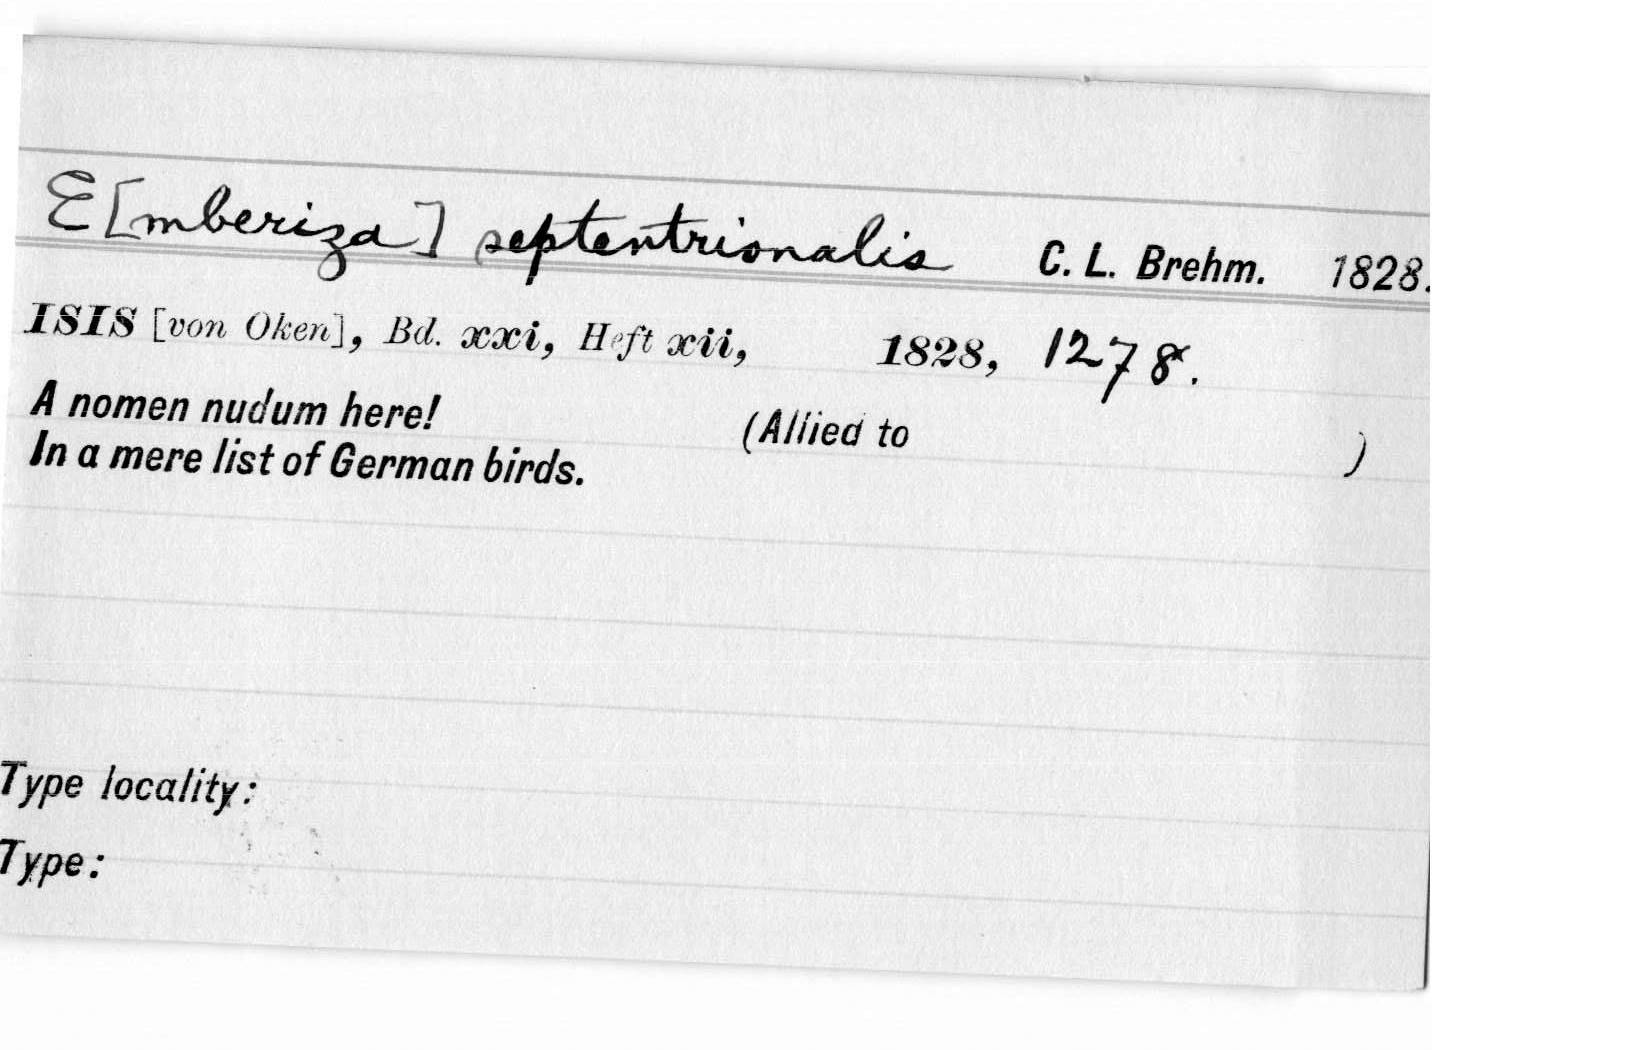 E[mberiza] septentrionalis C. L. Brehm. 1828.
ISIS [von Oken], Bd. xxi, Heft xii, 1828, 1278.
A nomen nudum here! (Allied to )
In a mere list of German birds.
Type locality:
Type: